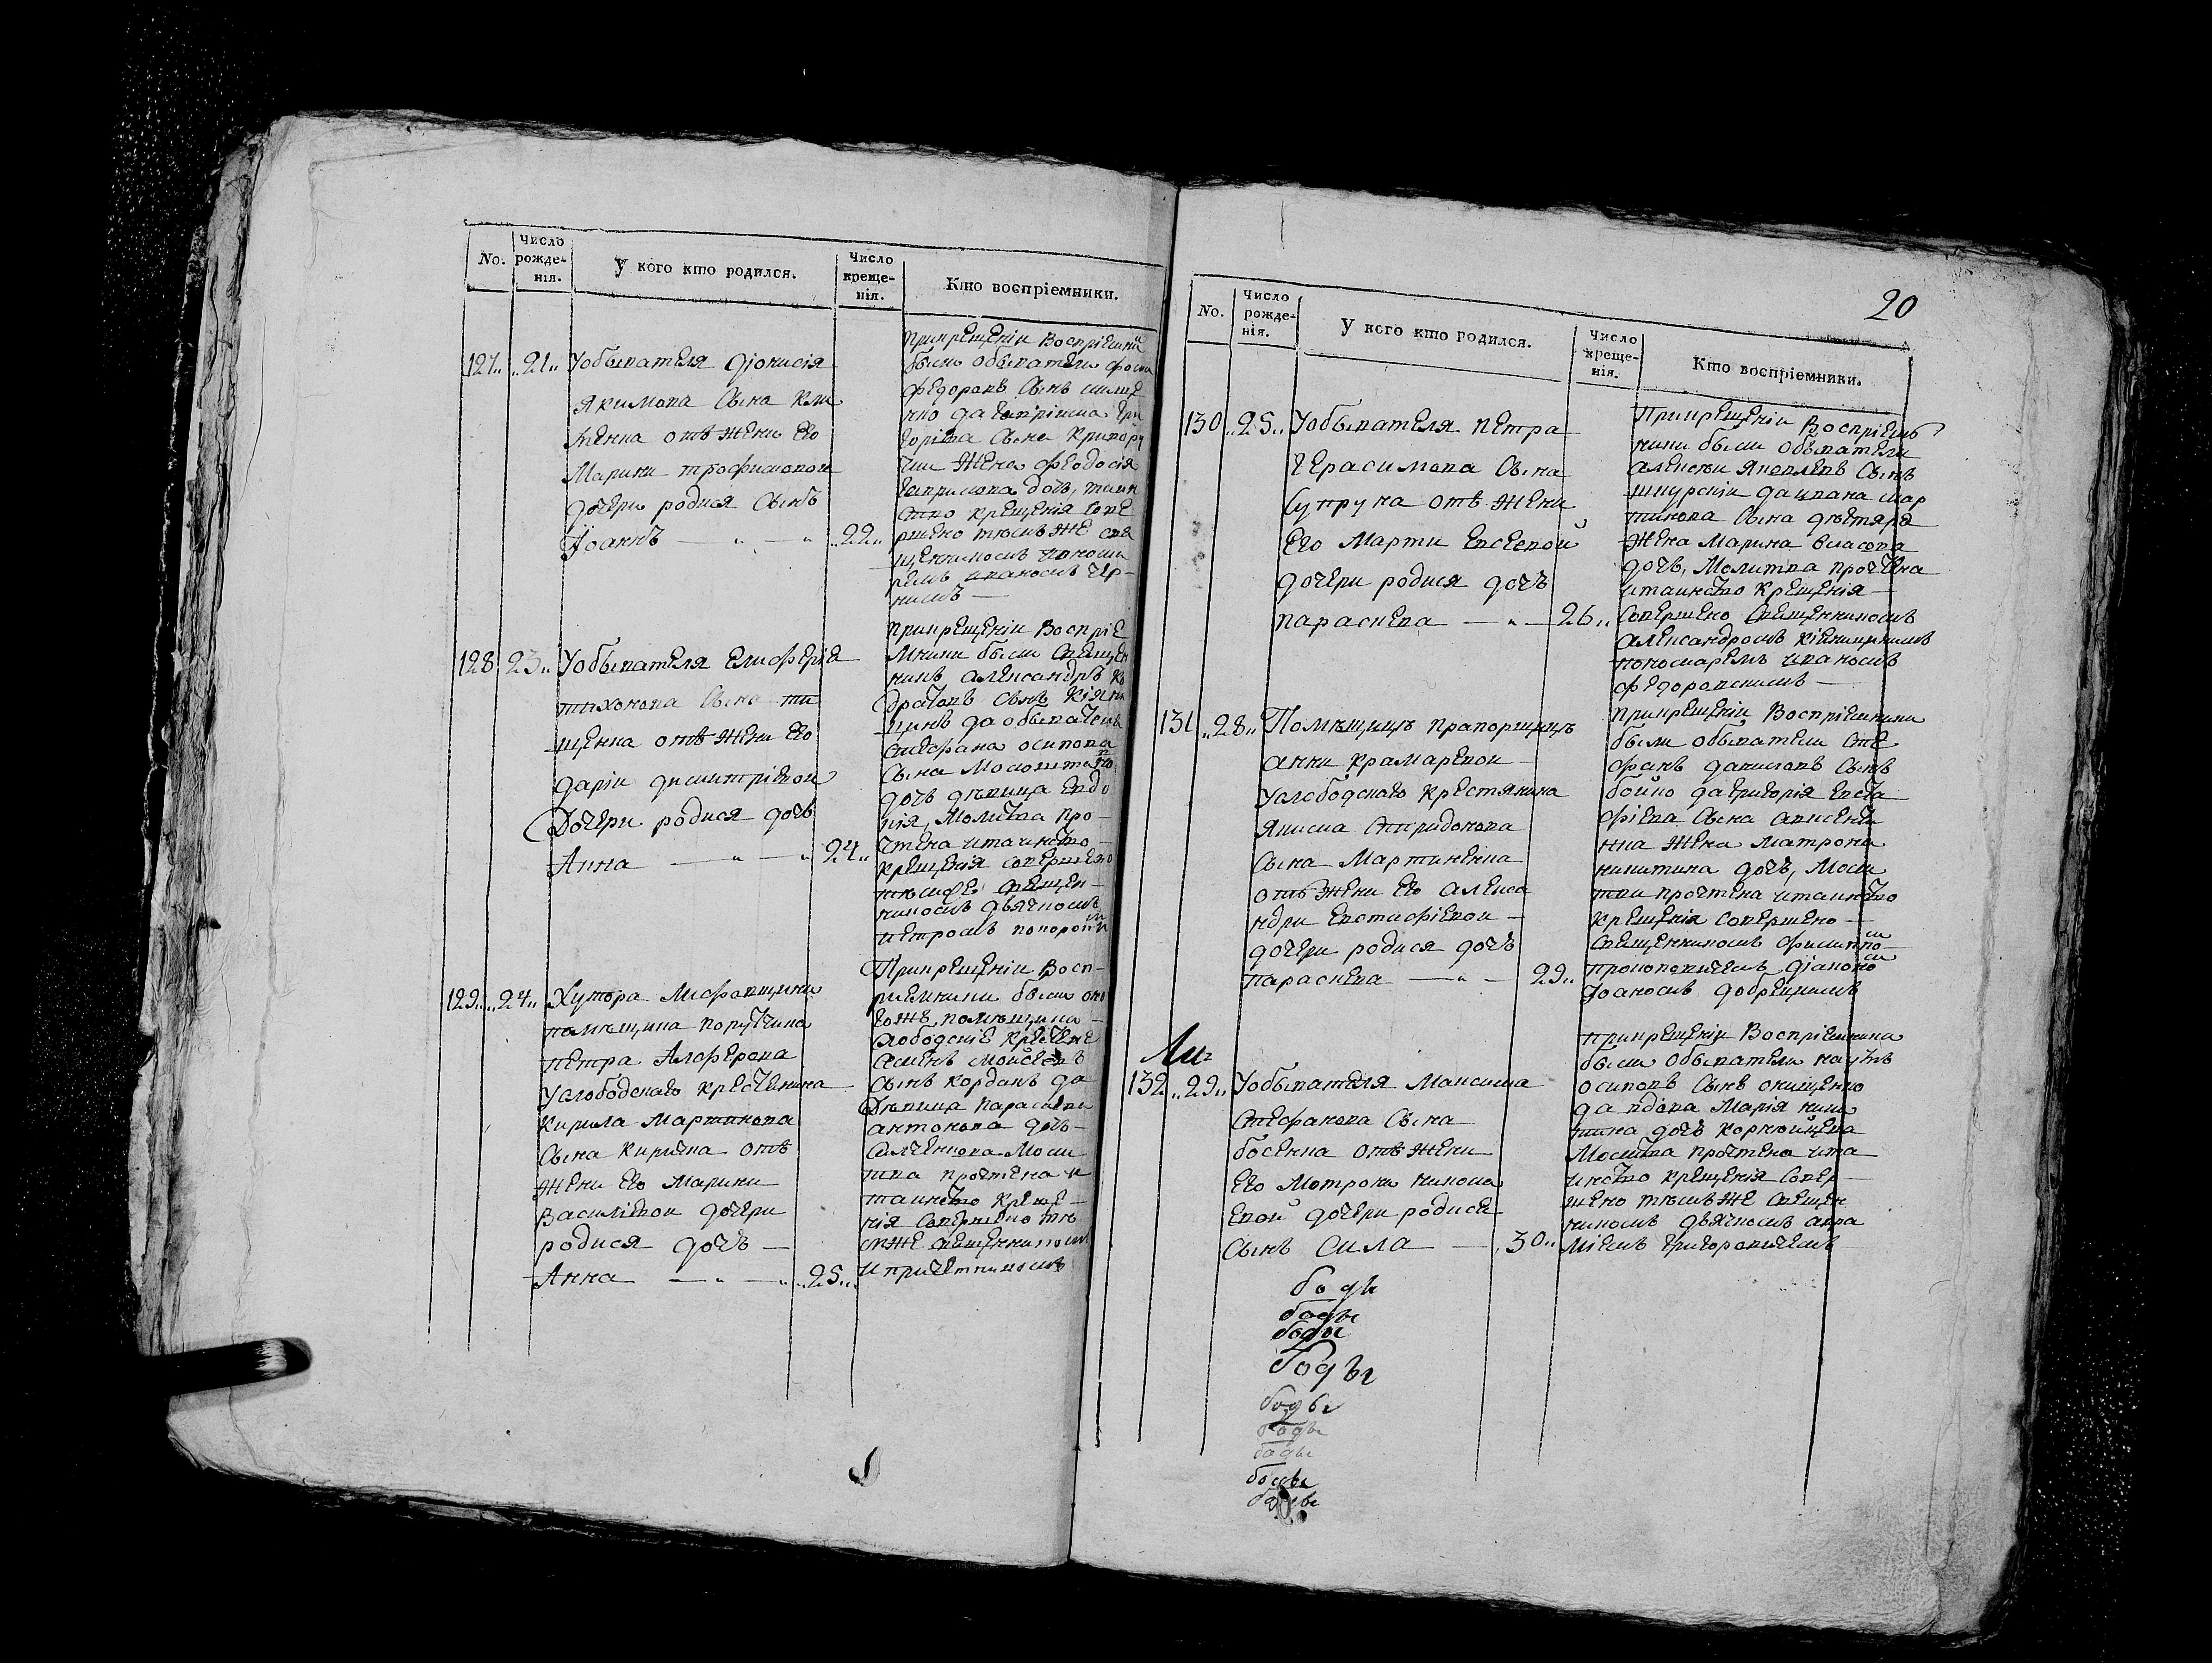 No.
Число рожде-нія.
У кого кто родился.
Число креще-нія.
Кто воспріемники.
127. 21. У обывателя Діонисія
Якимова сына Кли
менка отъ жени его
Марини Трофимовой
дочери родися сынъ
Іоаннъ — 22.
при крещеніи воспріемни
были обыватели
Федоровъ сынъ
жена Феодосія
дочь, таин
ство крещенія сове
ршено тѣмъ же свя
щенникомъ
128 23. У обывателя Елиферія
Тихонова сына Ти
щенка отъ жени его
Даріи Димитріевой
дочери родися дочь
Анна — 24.
при крещеніи воспріе
мники были священ
никъ Александръ
сынъ Кіяни
цинъ да обывателя
Стефана Осипова
сына
дочь девица Евдо
кія, молитва про
чтена и таинство
крещенія совершено
тѣмже священ
никомъ дьячкомъ
Петромъ
129. 24. Хутора Алферовщини
помѣщика порутчика
Петра Алферова
услободскаго крестьянина
Кирила Мартинова
сына Киричка отъ
жени его Марини
Василіевой дочери
родися дочь —
Анна — 25.
При крещеніи восп
риемники были оно
гожъ помѣщика
слободскіе крестяне
Семенъ Мойсеевъ
сынъ Корданъ да
девица Параскеви
Антонова дочь
Моли
тва прочтена и
таинство креще
нія совершено тѣ
мже священникомъ
и причетникомъ
20
No.
Число рожде-нія.
У кого кто родился.
Число креще-нія.
Кто воспріемники.
130 25. У обывателя Петра
Герасимова сына
Супруна отъ жени
его Марти Евсеевой
дочери родися дочь
Параскева — 26.
При крещеніи воспріем
ники были обыватели
Алексѣй Яковлевъ сынъ
да Ивана Мар
тинова сына Дегтяра
жена Марина Власова
дочь, молитва прочтена
и таинство крещенія
совершено священникомъ
Александромъ Кіяницинимъ
пономаремъ Иваномъ
Федоровскимъ —
131 28. Помѣщицѣ прапорщицѣ
Анни Крамаревой
услободскаго крестянина
Якима Спиридонова
сына Мартиненка
отъ жени его Алекса
ндри Евстафіевой
дочери родися дочь
Параскева — 29.
при крещеніи воспріемники
были обыватели Сте
фанъ Даниловъ сынъ
Бойко да Григорія Евста
фіева сына Авксенти
нка жена Матрона
Никитина дочь, моли
тви прочтена и таинство
крещенія совершено
священникомъ Филиппо
мъ Прокоповичемъ діяконо
мъ Іоаномъ Добрецкимъ
132 29. У обывателя Максима
Стефанова сына
Босенка отъ жени
его Мотрони Никола
евой дочери родися
сынъ Сила — 30.
при крещеніи воспріемники
были обыватели Наумъ
Осиповъ сынъ Онищенко
да вдова Марія Ники
тина дочь Корнюйщева
молитва прочтена и та
инство крещенія совер
шено тѣмъ же священ
никомъ дьячкомъ Авра
міемъ Григоровичемъ